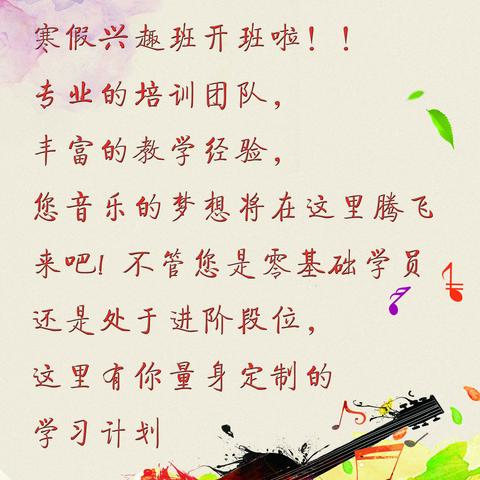 寒假兴趣班开班啦！！
专业的培训团队，
丰富的教学经验，
您音乐的梦想将在这里腾飞
来吧！不管您是零基础学员
还是处于进阶段位，
这里有你量身定制的
学习计划